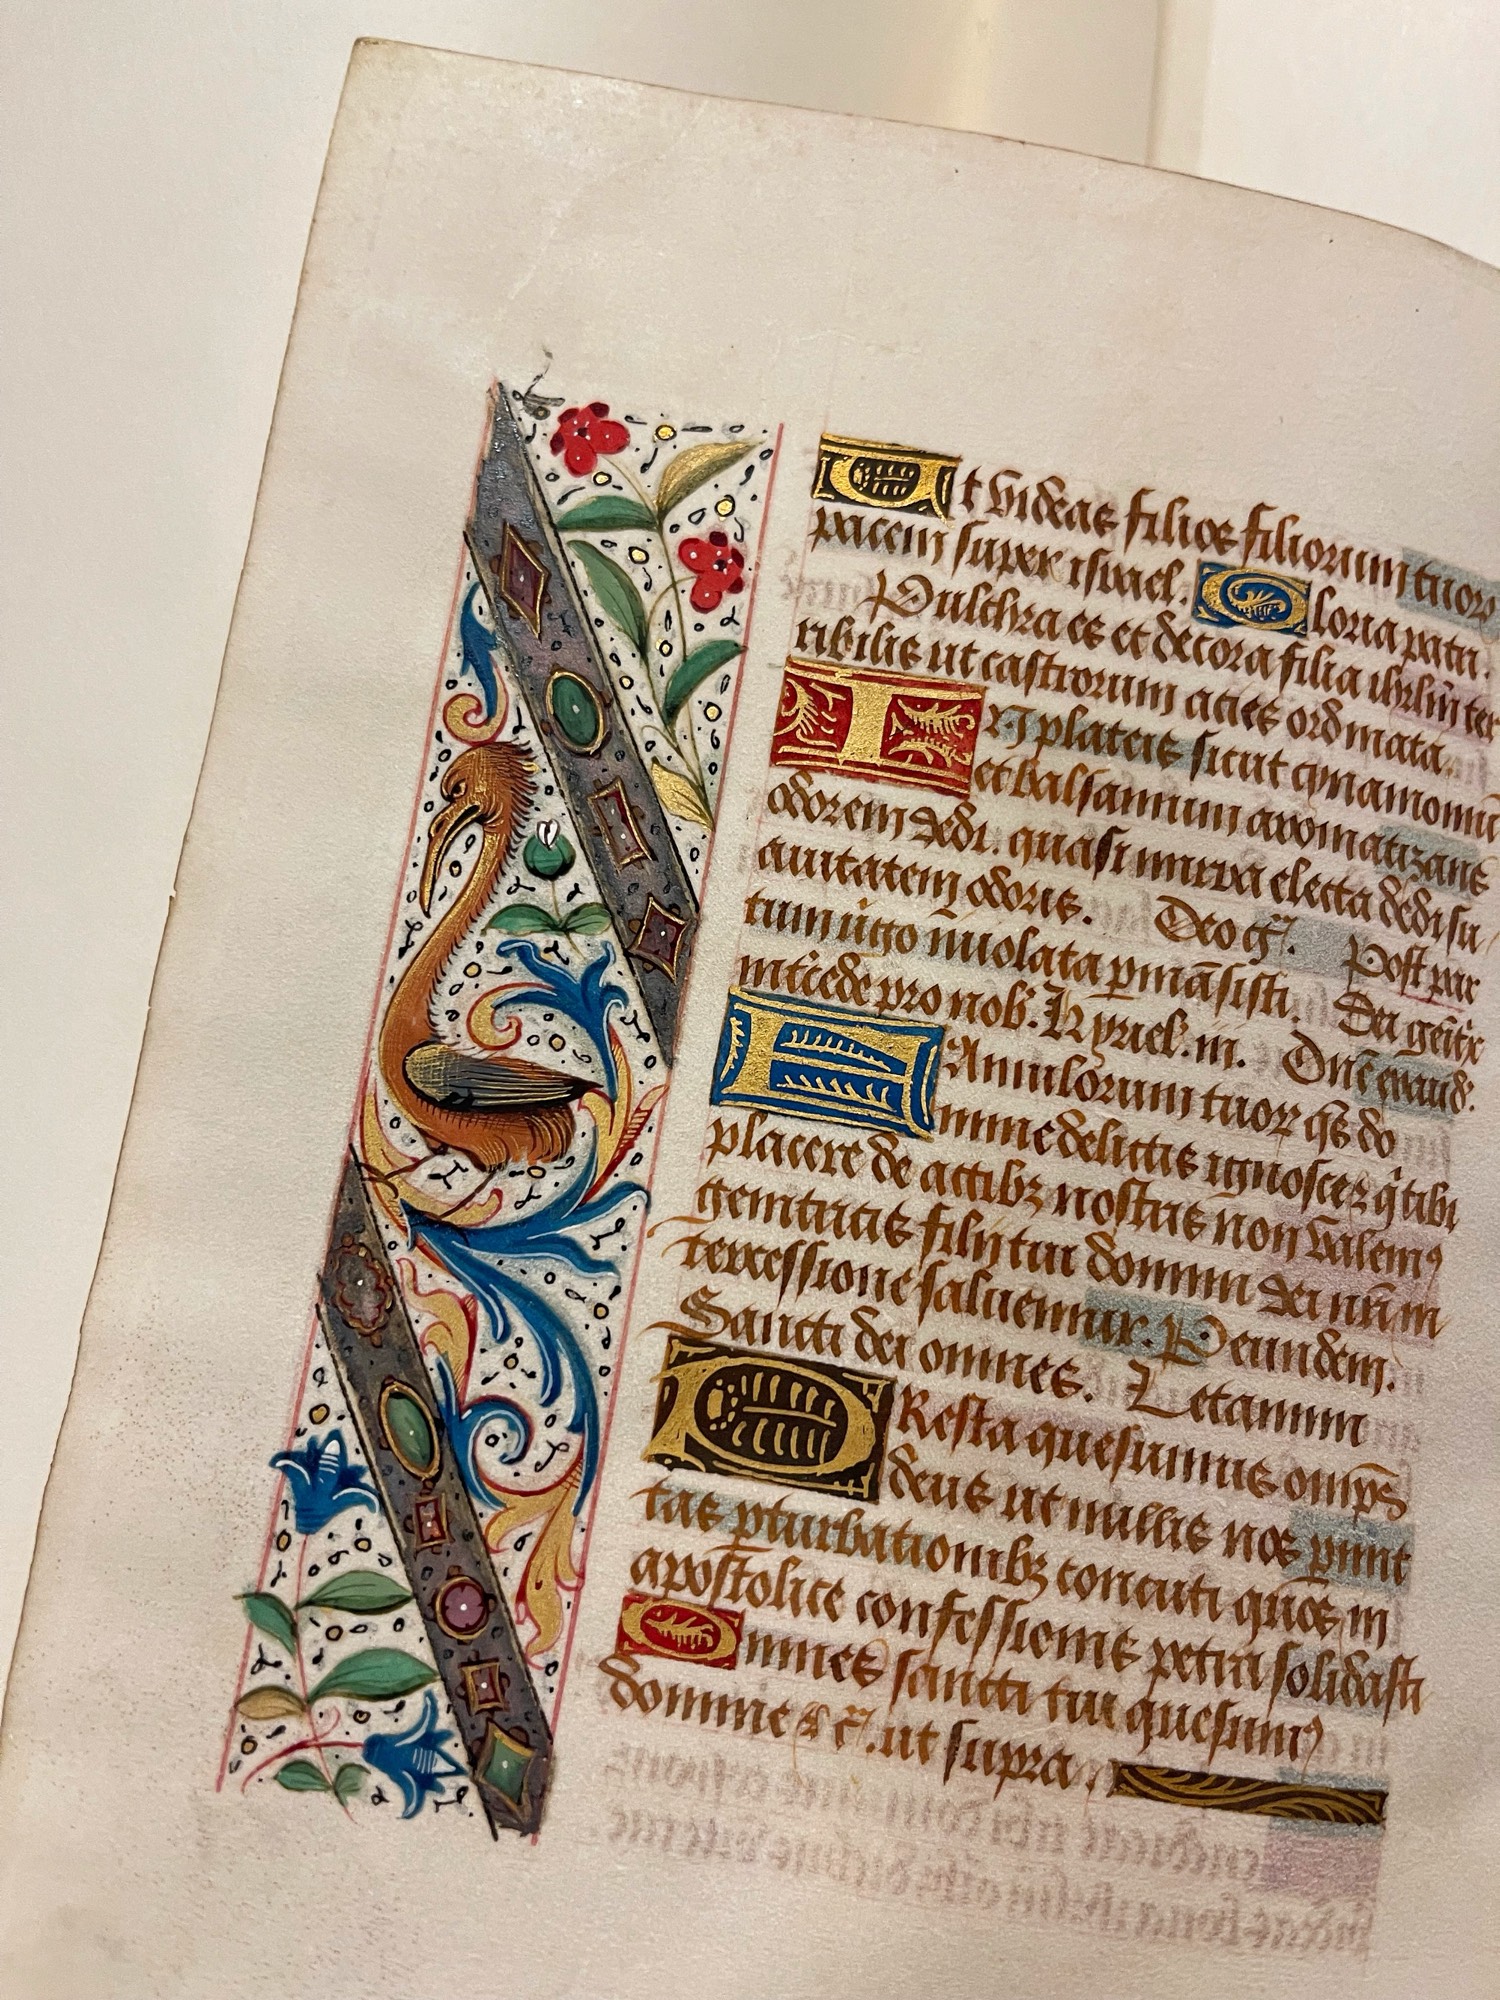 Et videas filios filiorum tuorꝝ
pacem super israel. Gloria patri.
Pulchra es et decora filia ihrl̄m ter
ribilis ut castrorum acies ordinata.
IN plateis sicut cynamomū
et balsamum aromatizans
odorem dedi. quasi mirra electa dedi su
auitatem odoris. Deo gr̄. Post par
tum uirgo inuiolata pmāsisti. Dei genitx
intercede pro nob. Kyriel. iii. Dn̄e exaud.
FAmulorum tuorꝝ qs̄ do
mine delictis ignosce ꝛ q̄ tibi
placere de actibꝫ nostris non valemꝰ
genitricis filij tui domini dei nr̄i in
tercessione saluemur. Per eundem.
Sancti dei omnes. Letanium
PResta quesumus omps̄
deus ut nullis nos pmit
tas pturbationibꝫ concuti quos in
apostolice confessionis petra solidasti
Omnes sancti tui quesumꝰ
domine ⁊ c̄. ut supra.